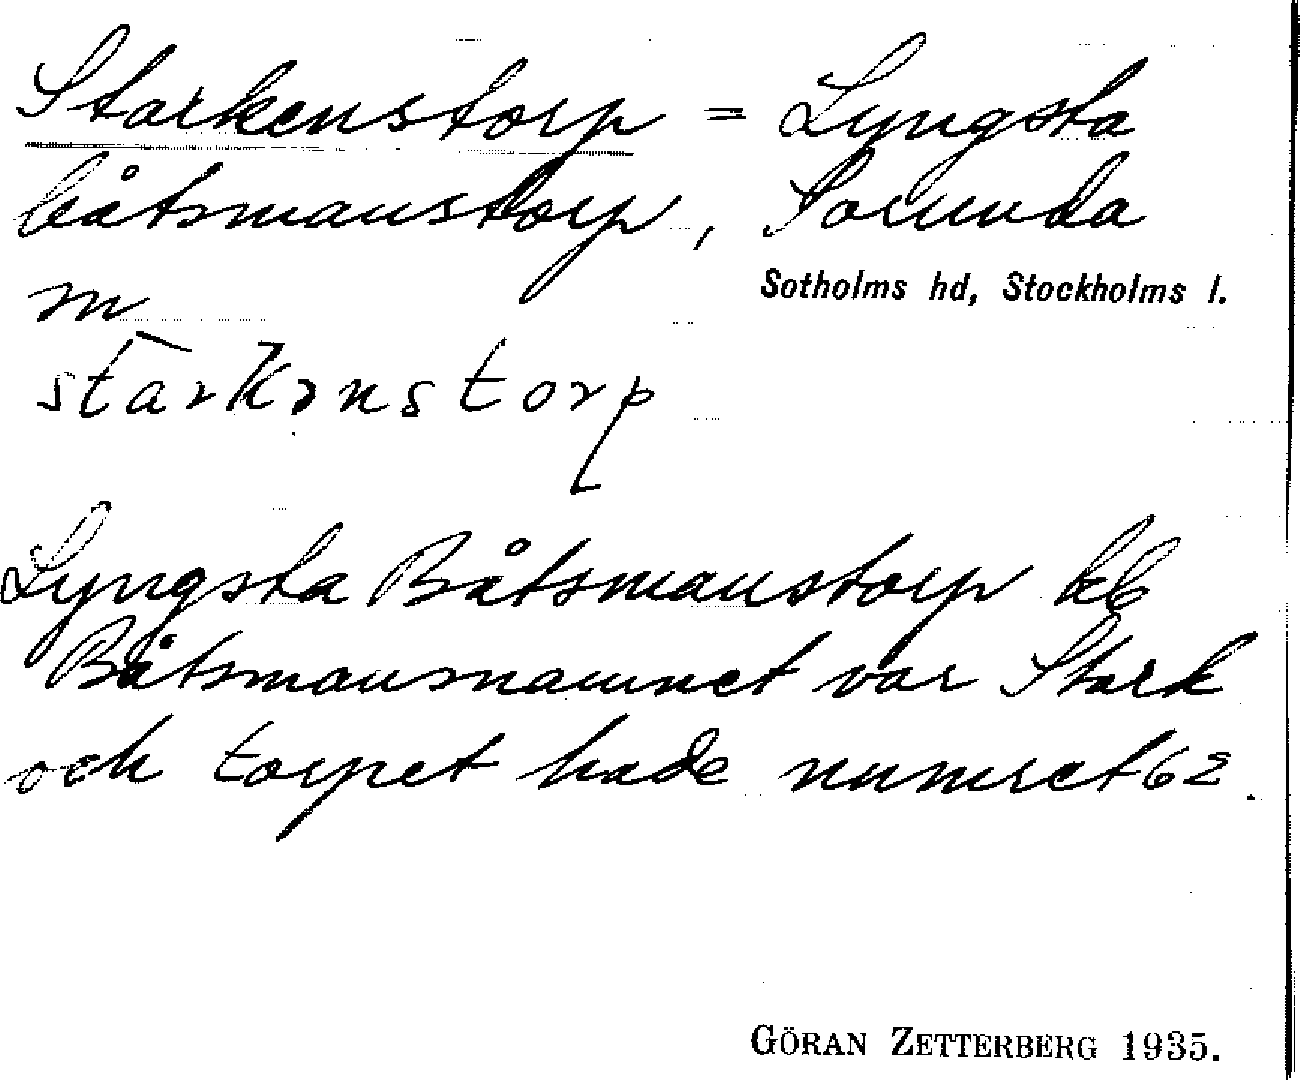 Starkenstorp = Lyngsta
båtsmanstorp, Sorunda
m
Sotholms hd, Stockholms l.
starkənstorp
Lyngsta Båtsmanstorp kb
Båtsmansnamnet var Stark
och torpet hade numret 62.
GÖRAN ZETTERBERG 1935.